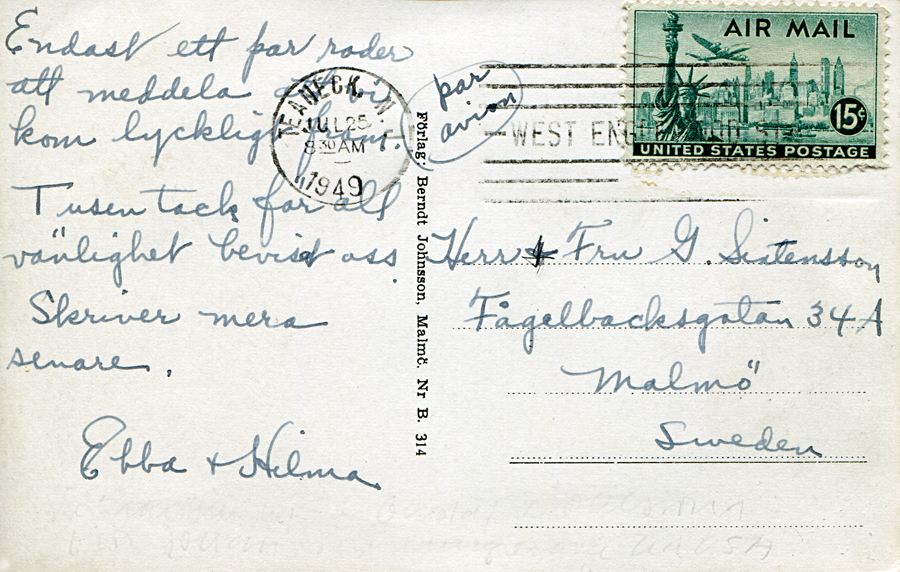 Endast ett par rader
att meddela att vi
kom lyckligt fram.
Tusen tack for all
vänlighet bevisat oss.
Skriver mera
senare.
Ebba + Hilma
TEANECK, N.
JUL 25
8 30 AM
1949
par
avion
Förlag: Berndt Johnsson, Malmö. Nr B. 314
AIR MAIL
15¢
UNITED STATES POSTAGE
WEST ENG
Herr + Fru G. Sixtensson
Fågelbacksgatan 34A
Malmö
Sweden